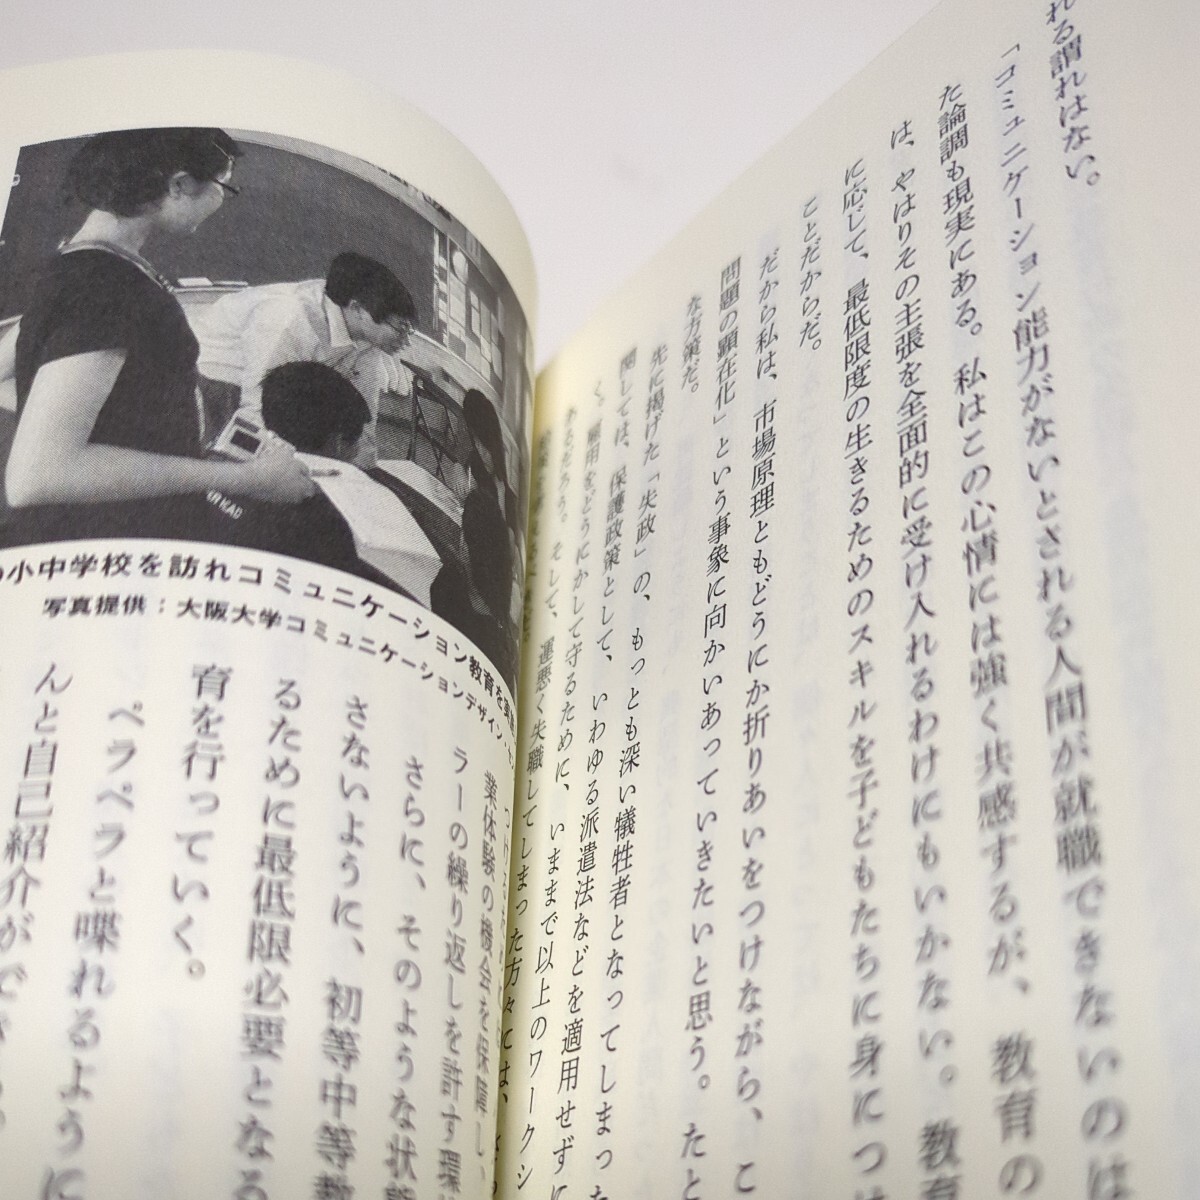 れる謂れはない。
「コミュニケーション能力がないとされる人間が就職できないのは
た論調も現実にある。私はこの心情には強く共感するが、教育の
は、やはりその主張を全面的に受け入れるわけにもいかない。教育
に応じて、最低限度の生きるためのスキルを子どもたちに身につけ
ことだからだ。
だから私は、市場原理ともどうにか折りあいをつけながら、こ
問題の顕在化」という事象に向かいあっていきたいと思う。たと
な方策だ。
先に掲げた「失政」の、もっとも深い犠牲者となってしまった
関しては、保護政策として、いわゆる派遣法などを適用せずに
く。雇用をどうにかして守るために、いままで以上のワークシ
あるだろう。そして、運悪く失職してしまった方々には、
小中学校を訪れコミュニケーション教育を
写真提供：大阪大学コミュニケーションデザイン・
業体験の機会を保障し、
ラーの繰り返しを許す環
さらに、そのような状態
さないように、初等中等教
るために最低限必要となる
育を行っていく。
ペラペラと喋れるように
んと自己紹介ができ